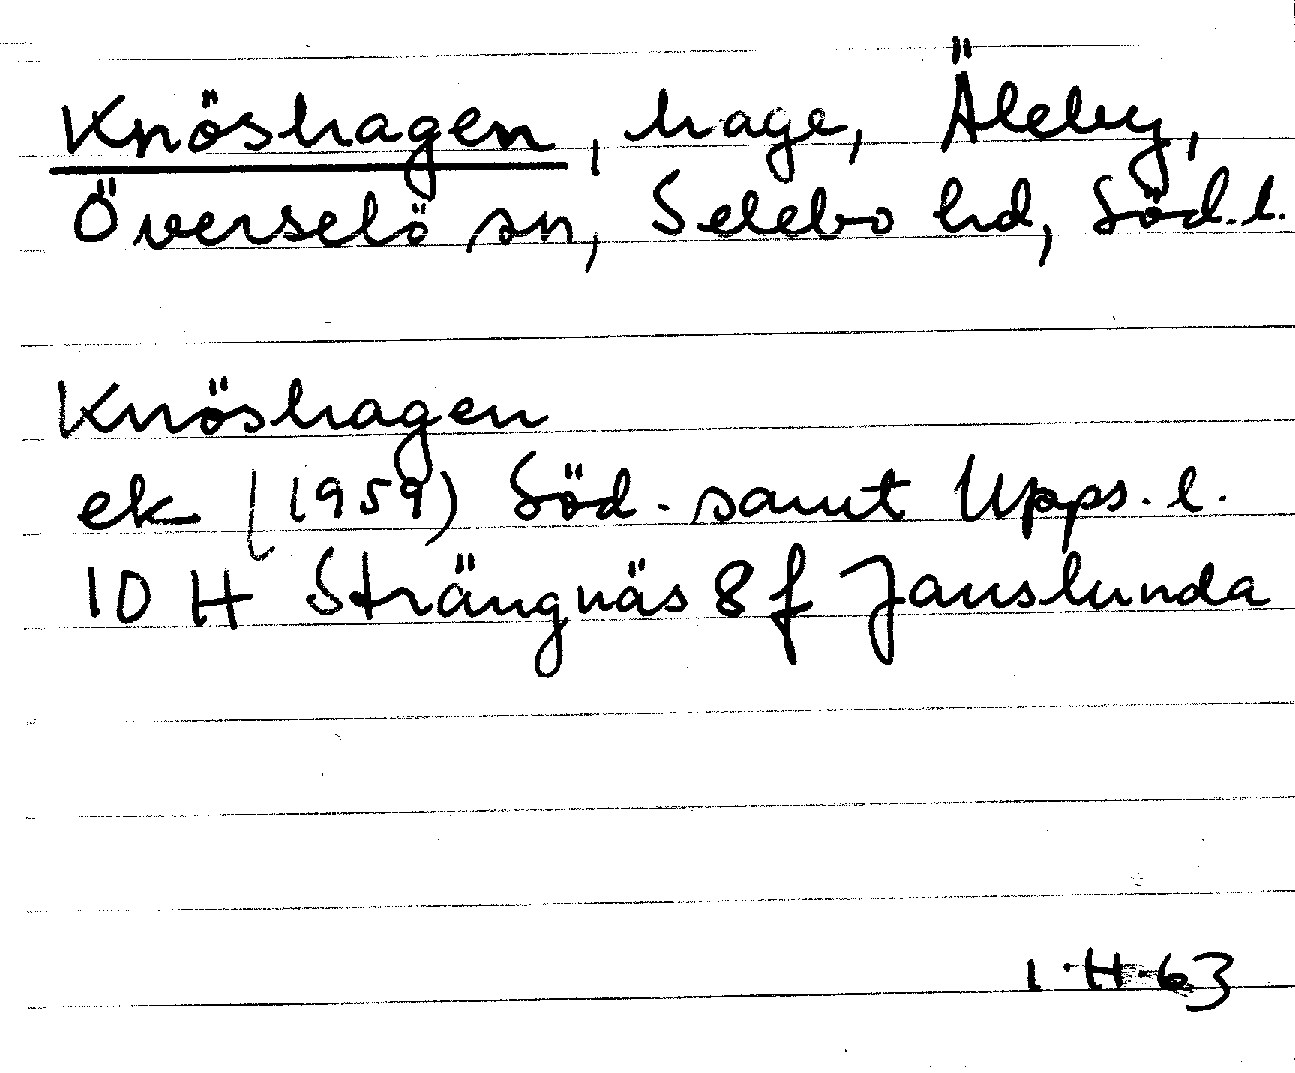 Knöshagen, hage, Äleby,
Överselö sn, Selebo hd, Söd. l.
Knöshagen
ek (1959) Söd. samt Upps. l.
10 H Strängnäs 8 f Janslunda
I.H.63